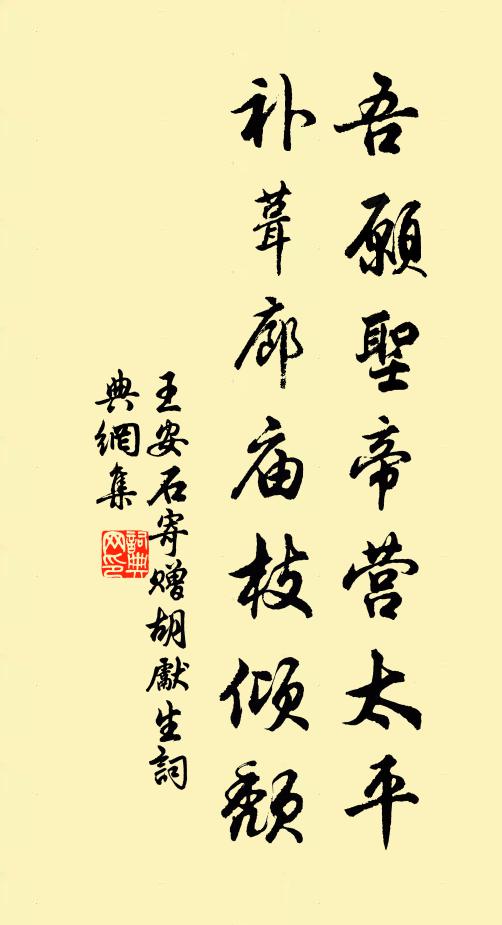 吾願聖帝营太平
补葺廊庙枝傾頹
王安石寄贈胡獻生詞
典網集
詞典
网印